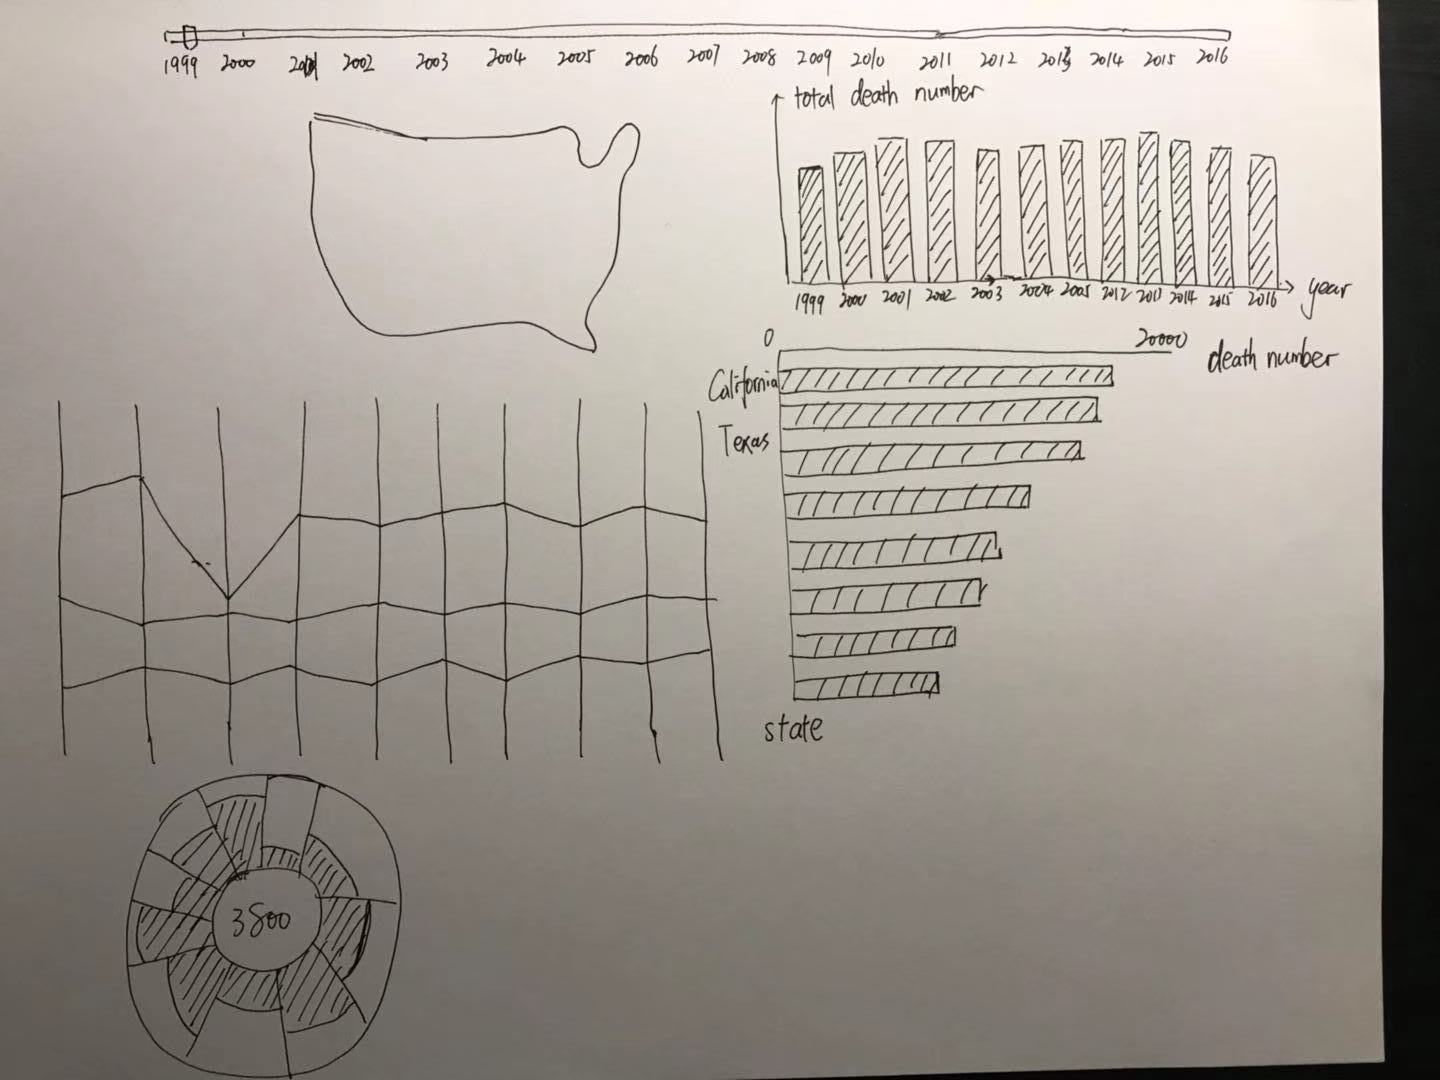 1999 2000 2001 2002 2003 2004 2005 2006 2007 2008 2009 2010 2011 2012 2013 2014 2015 2016
total death number
1999 2000 2001 2002 2003 2004 2005 2012 2013 2014 2015 2016
year
0 20000
death number
California
Texas
state
3800